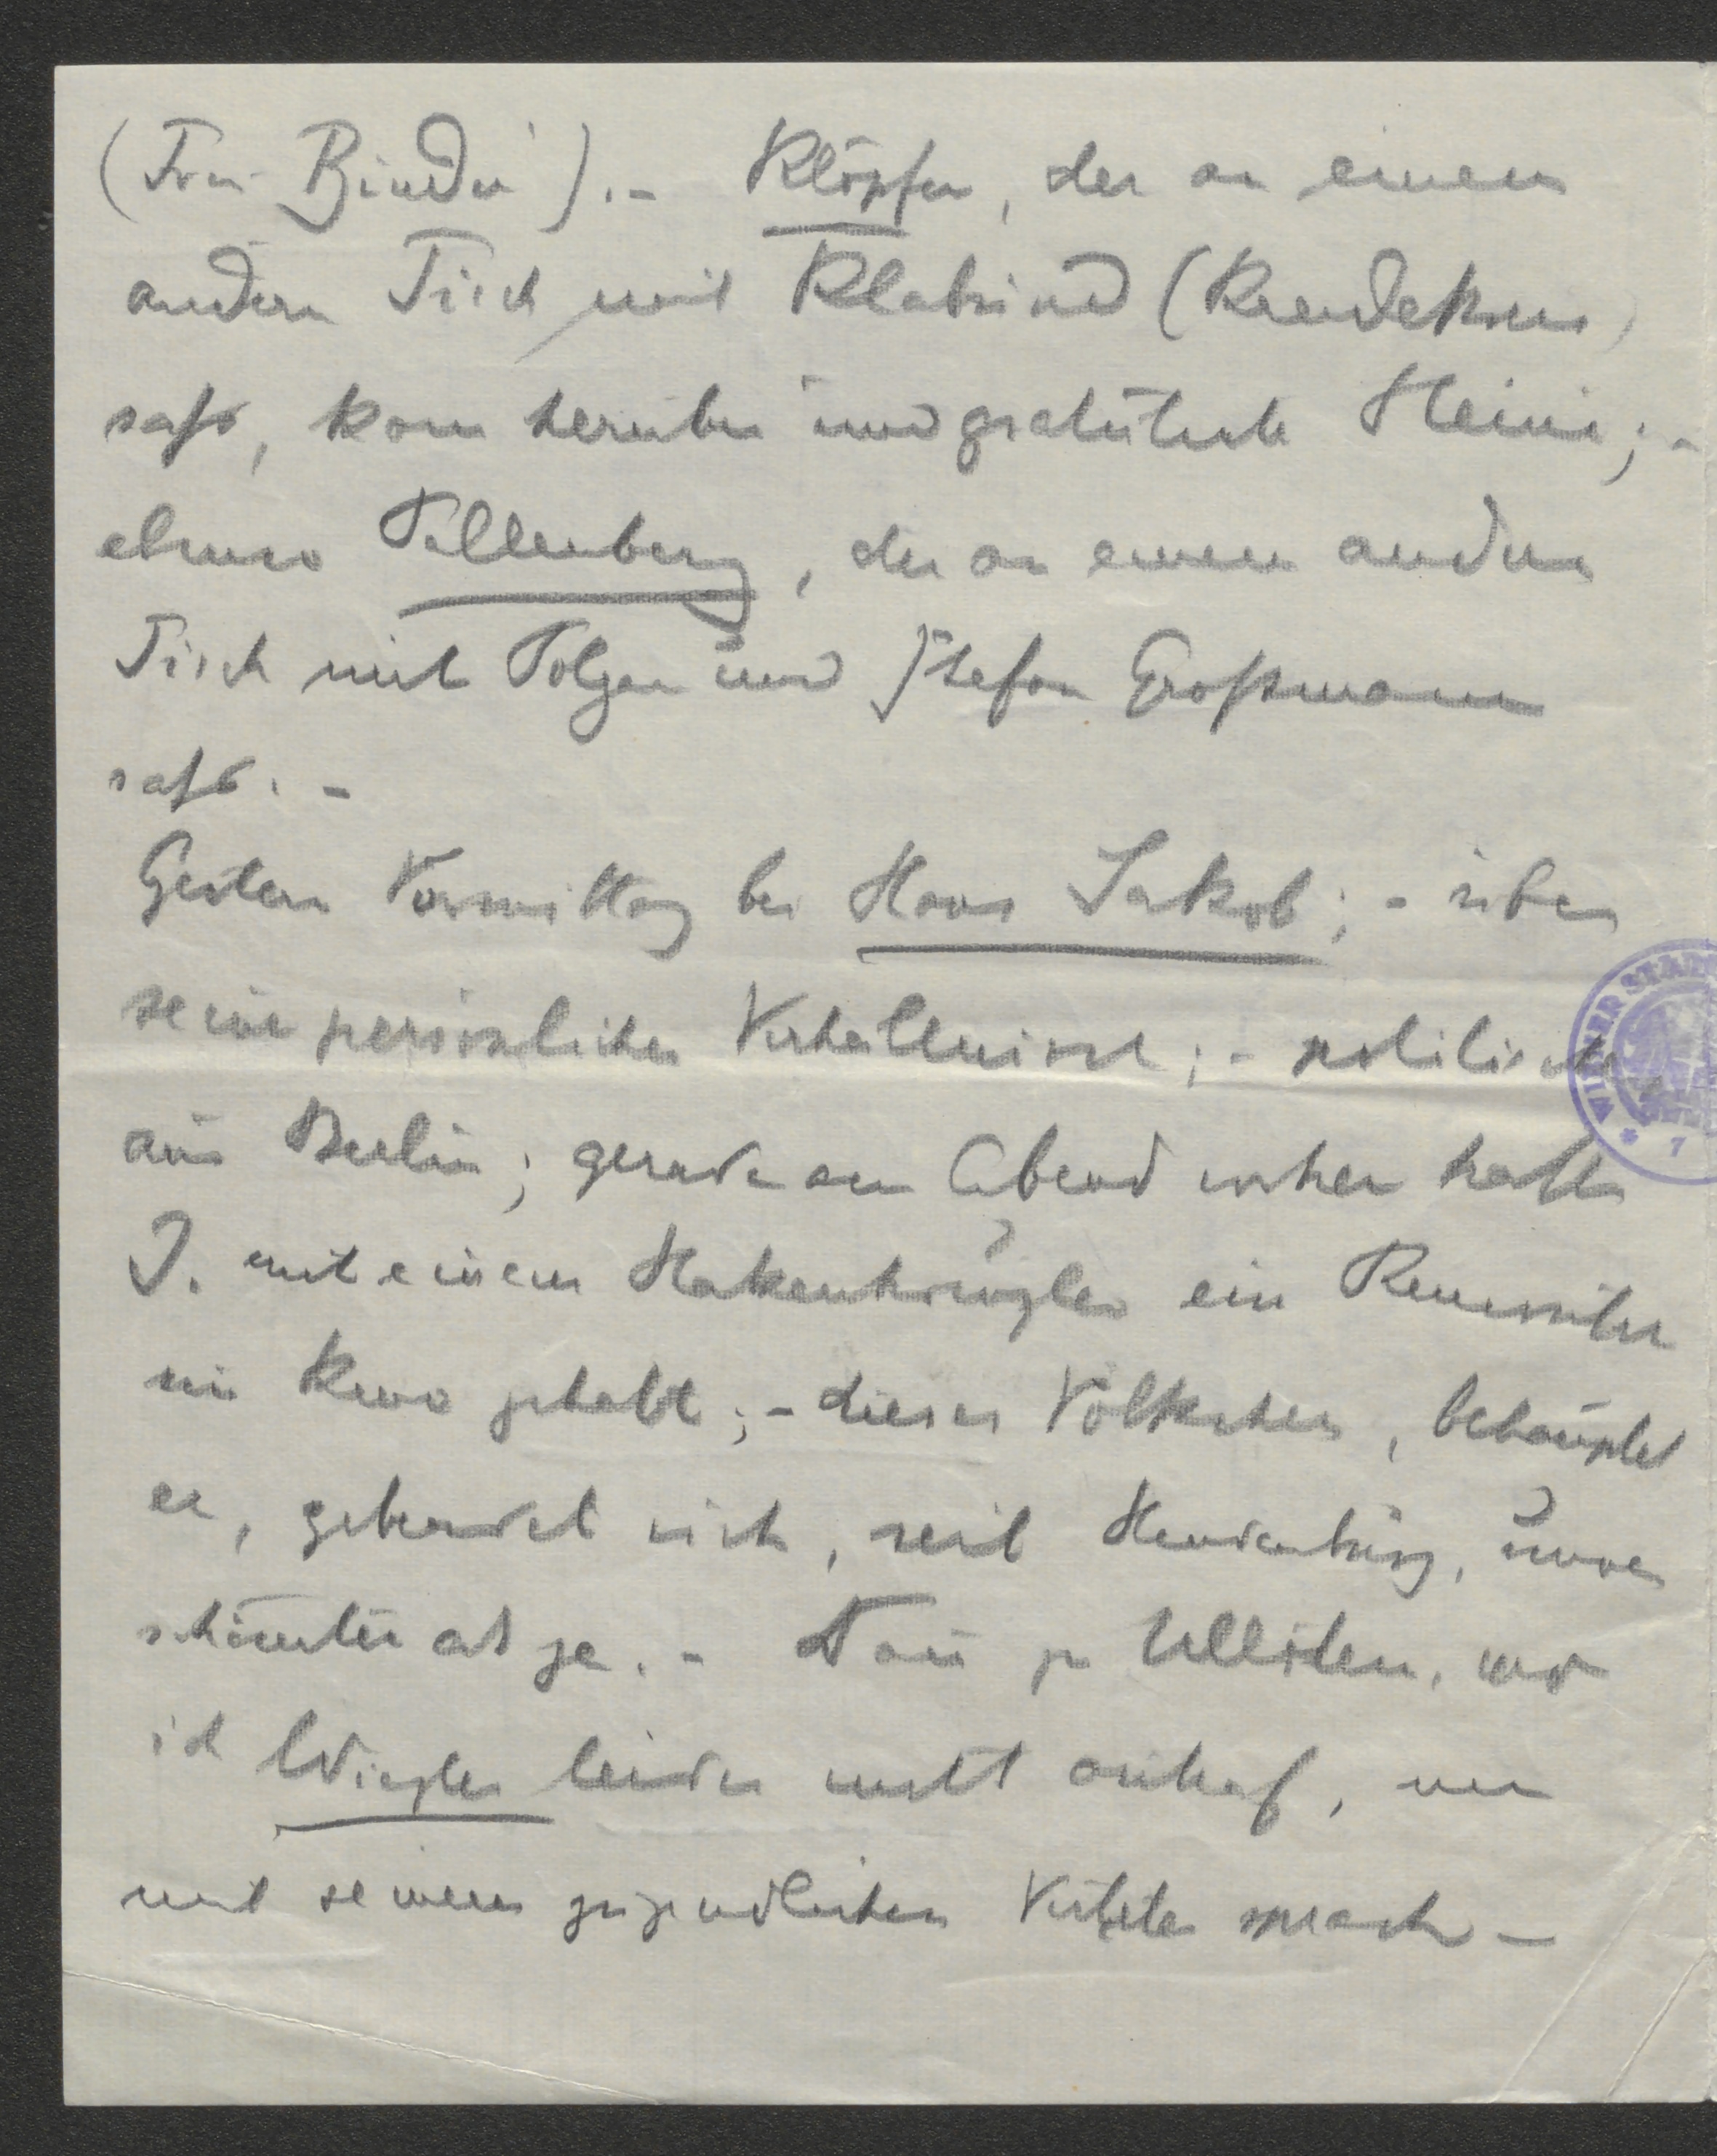 (Frau Bindu).– Klöpfer, der an einem
andern Tisch mit Klabund (Kreidekreis)
saß, kam herüber und gratulirte Heini;–
ebenso Pallenberg, der an einem andern
Tisch mit Polgar und Stefan Großmann
saß.–
Gestern Vormittag bei Hans Jakob;– über
seine persönlichen Verhältnisse;– politisches
aus Berlin; gerade am Abend vorher hatte
J. mit einem Hakenkreuzler ein Renconter
im Kino gehabt;– dieses Völkchen, behauptet
er, geberdet sich, seit Hindenburg, unver
schämter als je.– Dann zu Ullstein, wo
ich Wiegler leider nicht antraf, nur
mit seinem jugendlichen Vertreter sprach –
WIENER STADT
* 7